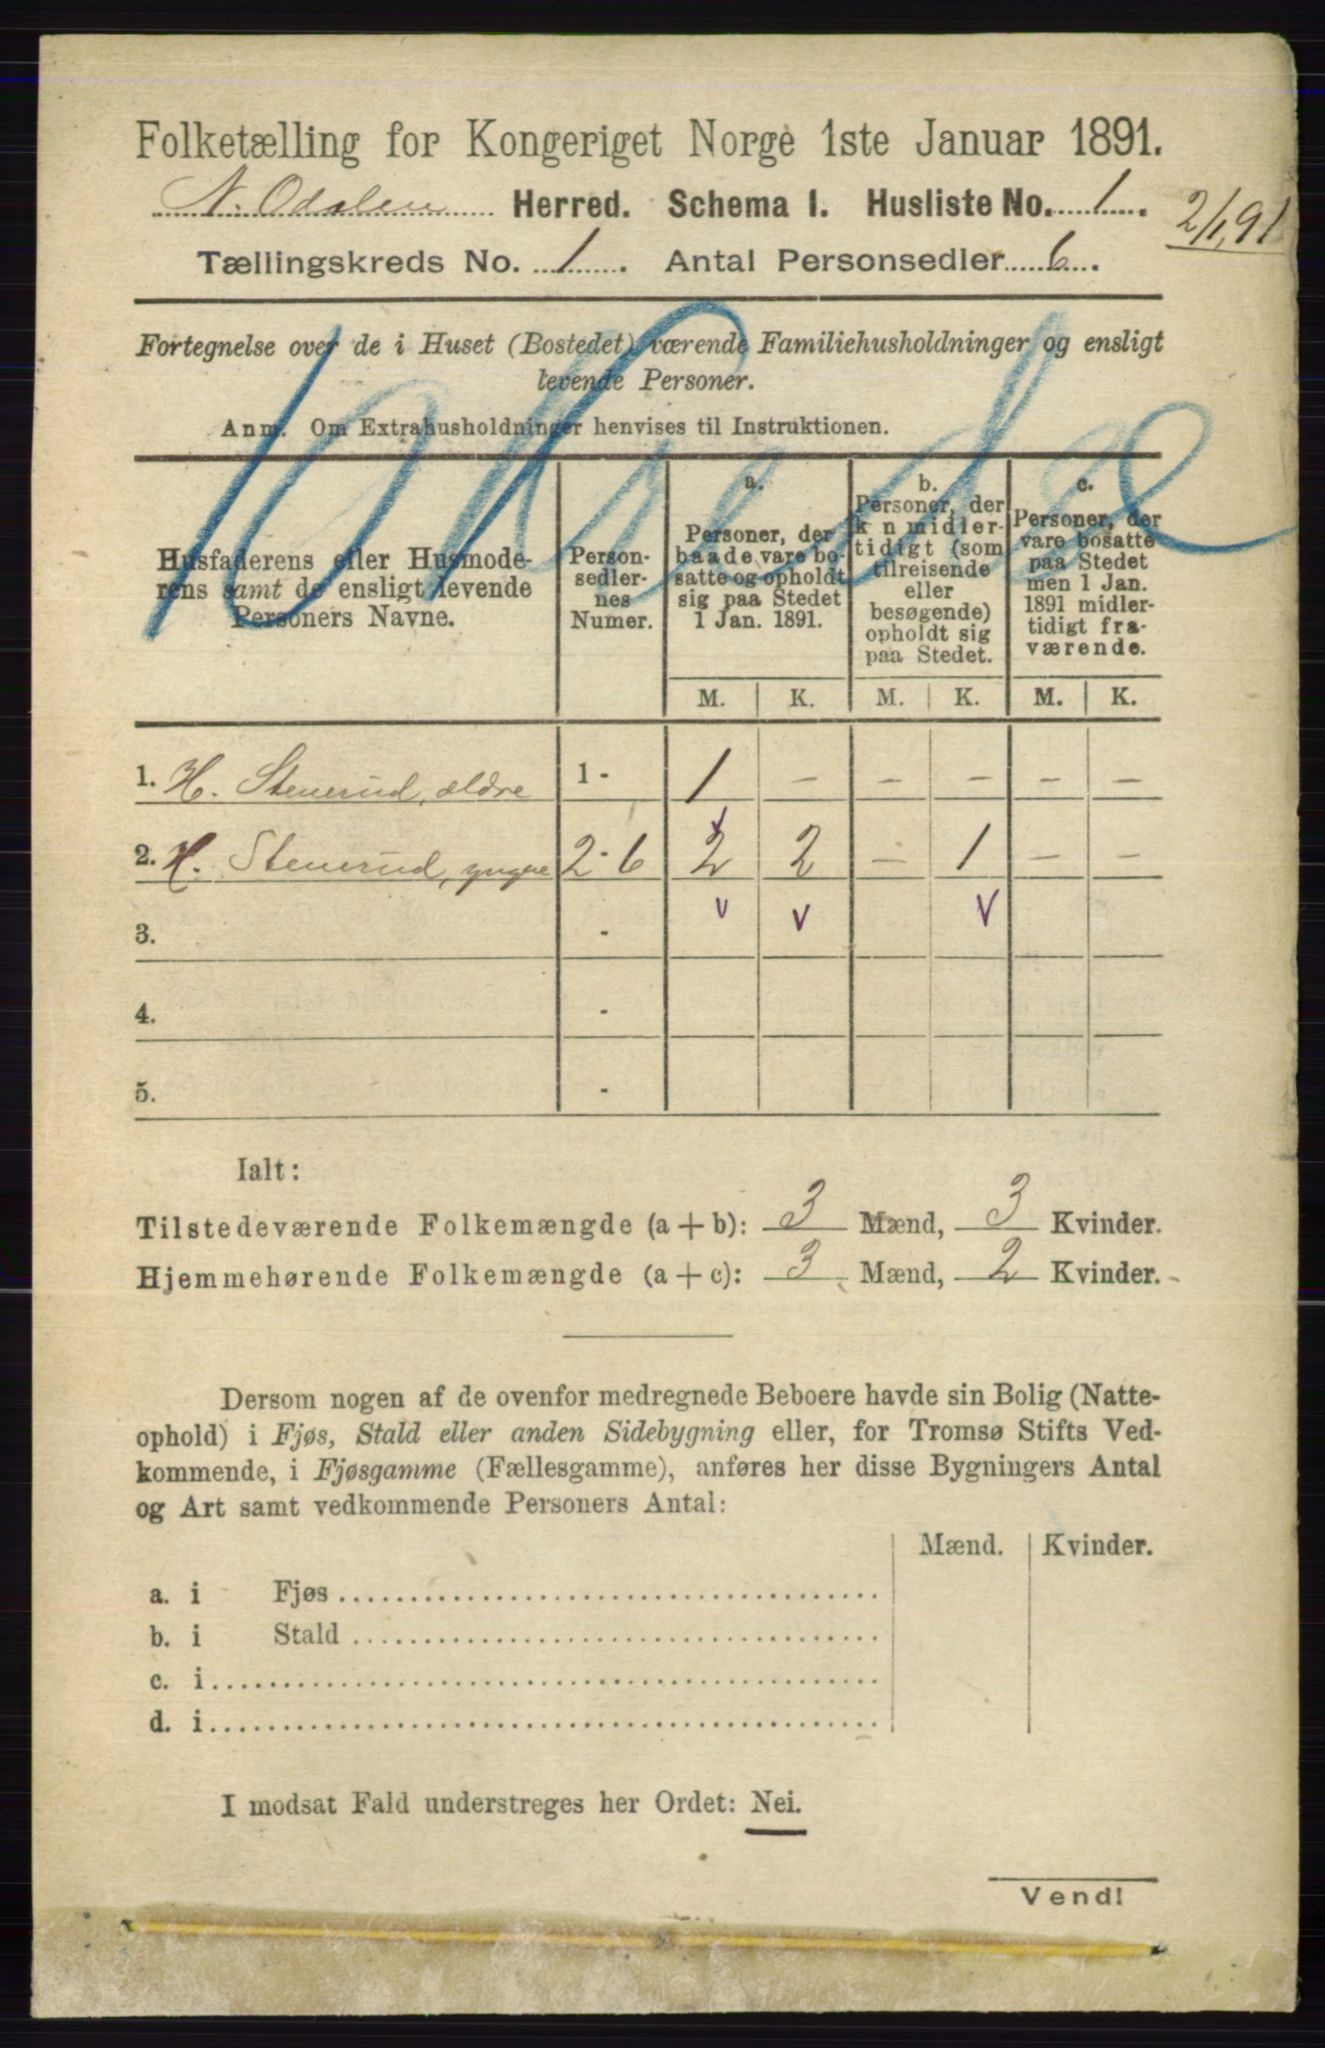 Folketælling for Kongeriget Norge 1ste Januar 1891.
N. Odalen Herred. Schema I. Husliste No. 1.
2/1,91
Tællingskreds No. 1. Antal Personsedler 6.
Fortegnelse over de i Huset (Bostedet) værende Familiehusholdninger og ensligt
levende Personer.
Anm. Om Extrahusholdninger henvises til Instruktionen.
Husfaderens eller Husmoderens samt de ensligt levende
Personers Navne.
Person-
sedler-
nes
Numer.
a.
Personer, der
baade vare bo-
satte og opholdt
sig paa Stedet
1 Jan. 1891.
b.
Personer, der
k n midler-
tidigt (som
tilreisende
eller
besøgende)
opholdt sig
paa Stedet.
c.
Personer, der
vare bosatte
paa Stedet
men 1 Jan.
1891 midler-
tidigt fra-
værende.
M. K. M. K. M. K.
1. H. Stenerud, ældre 1 - 1 – – – – –
2. H. Stenerud, yngre 2 - 6 2 2 – 1 – –
3. -
4. -
5. -
Ialt:
Tilstedeværende Folkemængde (a + b): 3 Mænd, 3 Kvinder.
Hjemmehørende Folkemængde (a + c): 3 Mænd, 2 Kvinder.
Dersom nogen af de ovenfor medregnede Beboere havde sin Bolig (Natte-
ophold) i Fjøs, Stald eller anden Sidebygning eller, for Tromsø Stifts Ved-
kommende, i Fjøsgamme (Fællesgamme), anføres her disse Bygningers Antal
og Art samt vedkommende Personers Antal:
Mænd. Kvinder.
a. i Fjøs
b. i Stald
c. i
d. i
I modsat Fald understreges her Ordet: Nei.
Vend!